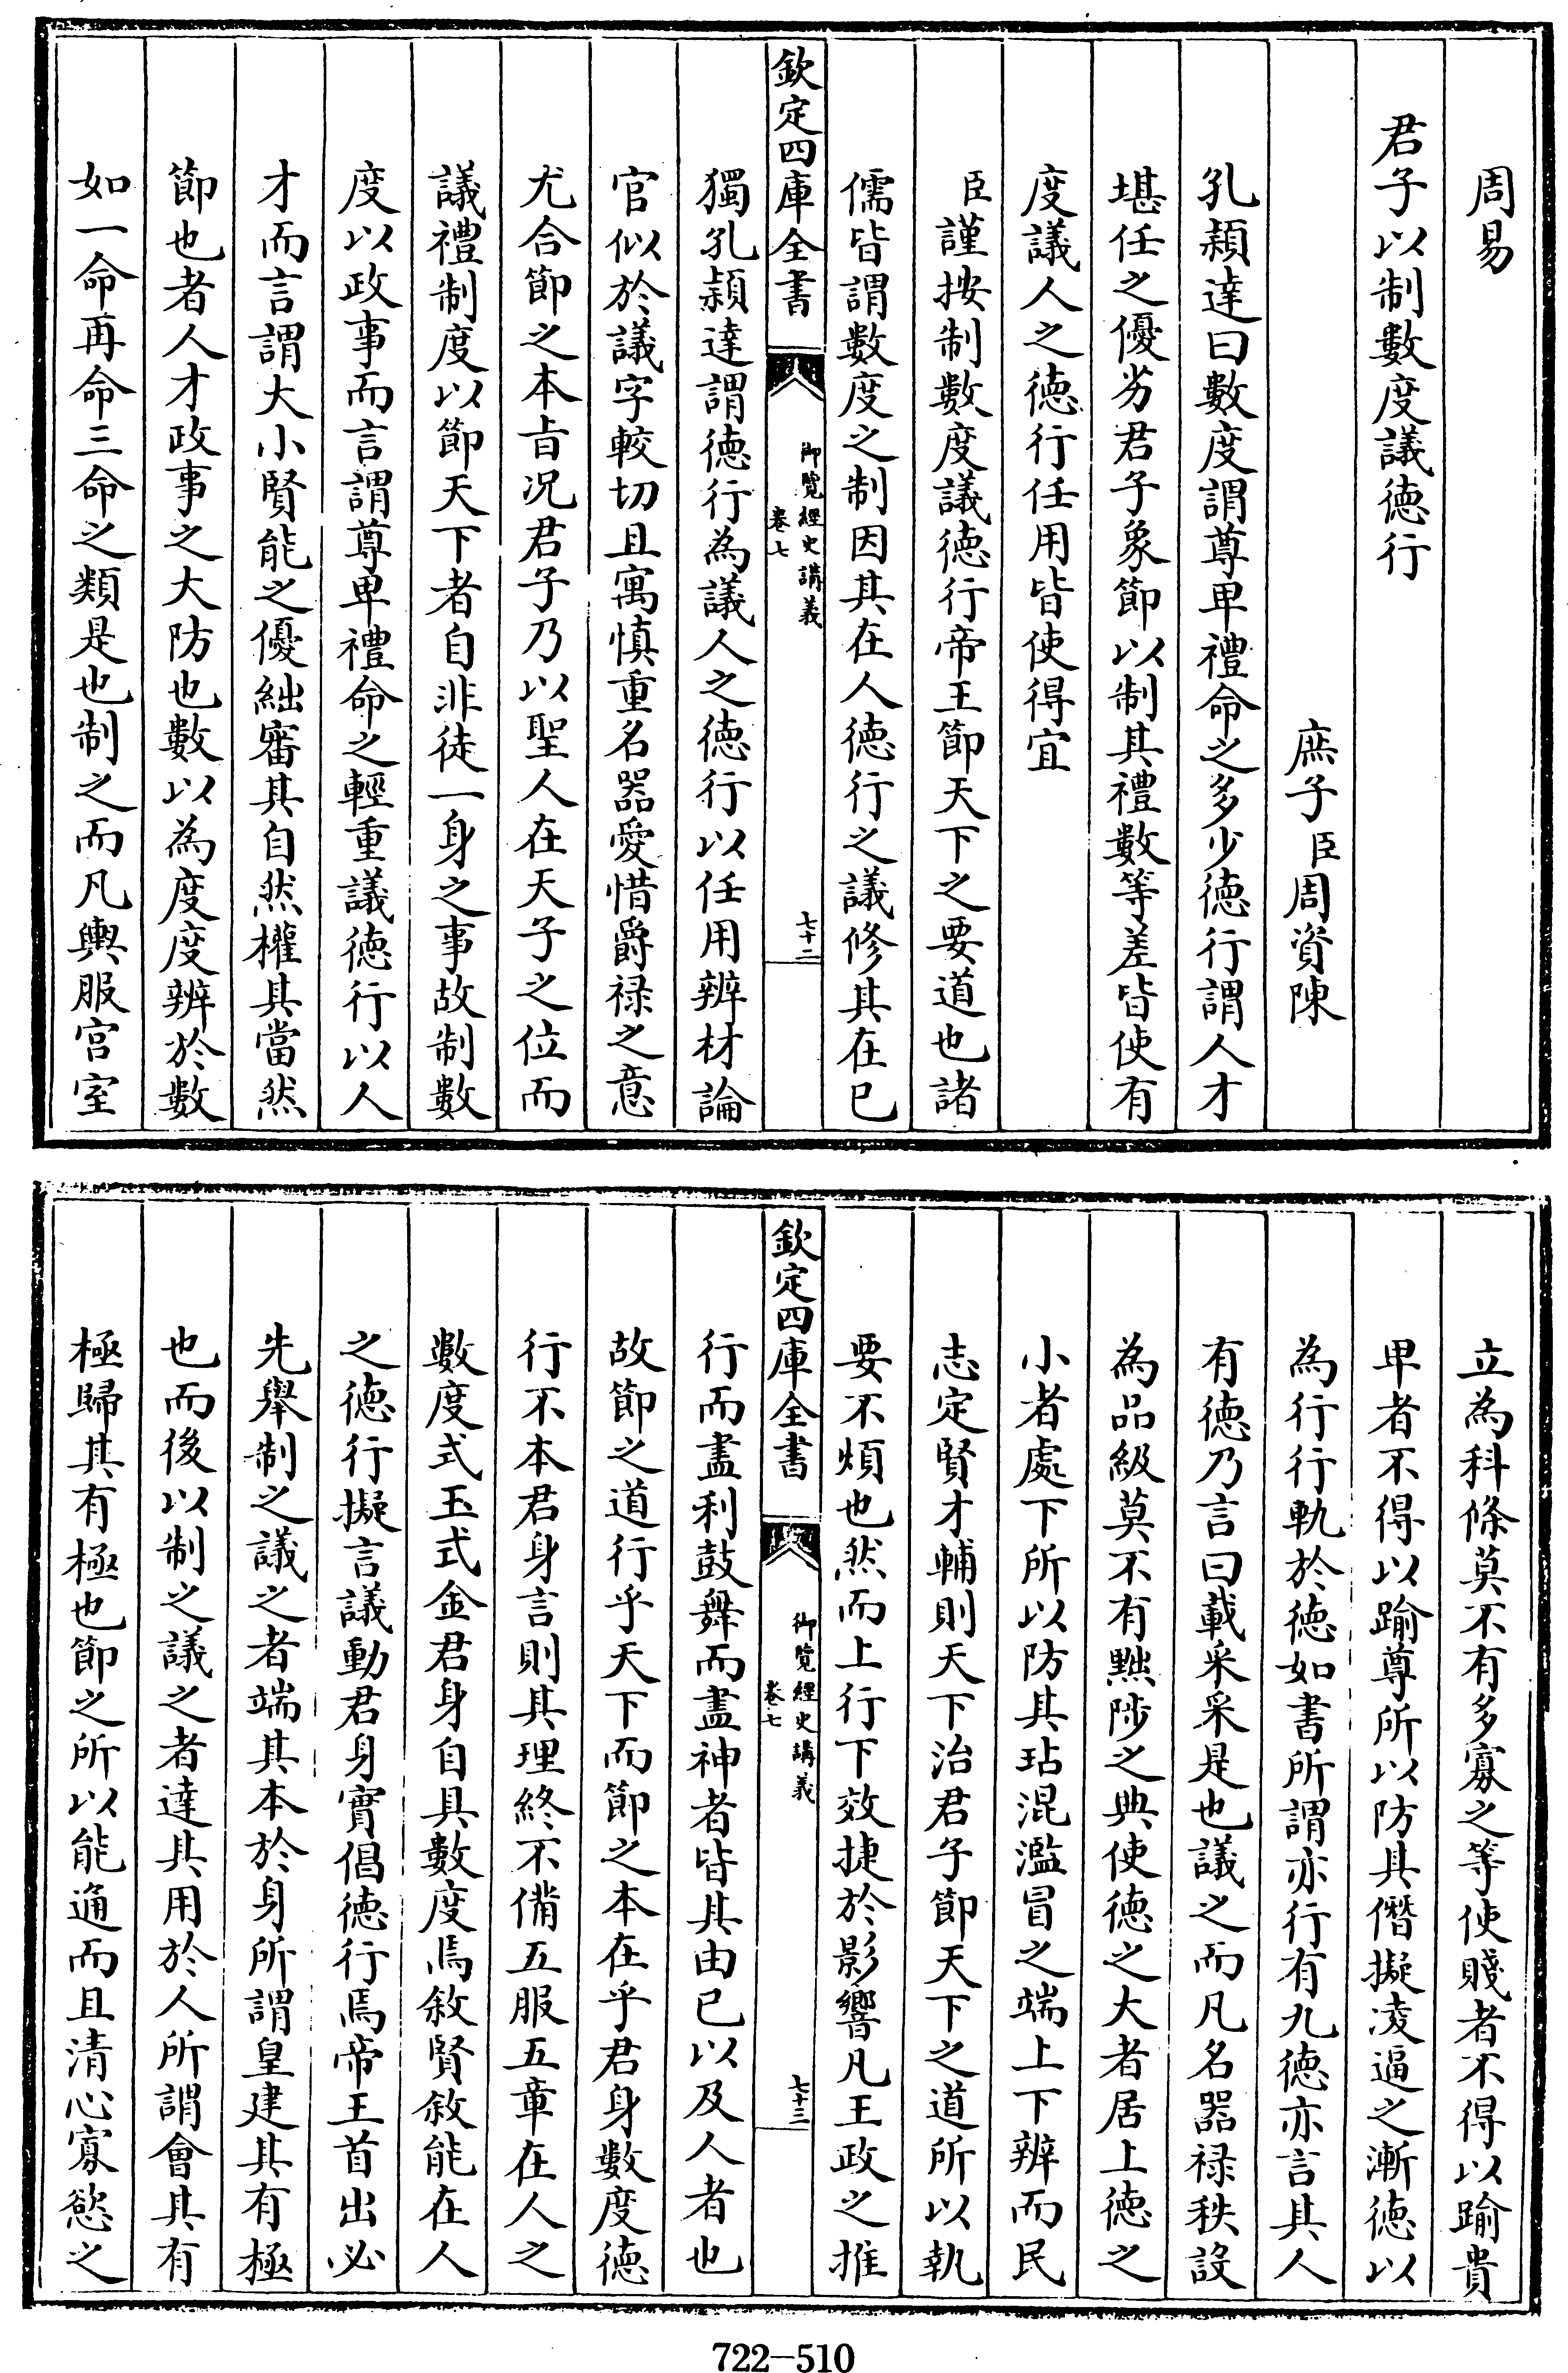 周易
君子以制數度議德行
庶子臣周資陳
孔穎達曰數度謂尊卑禮命之多少德行謂人才
堪任之優劣君子象節以制其禮數等差皆使有
度議人之德行任用皆使得宜
臣謹按制數度議德行帝王節天下之要道也諸
儒皆謂數度之制因其在人德行之議修其在已
欽定四庫全書
御覽經史講義
卷七
七十二
獨孔穎達謂德行為議人之德行以任用辨材論
官似於議字較切且寓慎重名器愛惜爵祿之意
尤合節之本㫖况君子乃以聖人在天子之位而
議禮制度以節天下者自非徒一身之事故制數
度以政事而言謂尊卑禮命之輕重議德行以人
才而言謂大小賢能之優絀審其自然權其當然
節也者人才政事之大防也數以為度度辨於數
如一命再命三命之類是也制之而凡輿服宮室
立為科條莫不有多寡之等使賤者不得以踰貴
卑者不得以踰尊所以防其僭擬凌逼之漸德以
為行行軌於德如書所謂亦行有九德亦言其人
有德乃言曰載采采是也議之而凡名器祿秩設
為品級莫不有黜陟之典使德之大者居上德之
小者處下所以防其玷混濫冒之端上下辨而民
志定賢才輔則天下治君子節天下之道所以執
要不煩也然而上行下效捷於影響凡王政之推
欽定四庫全書
御覽經史講義
卷七
七十三
行而盡利鼓舞而盡神者皆其由已以及人者也
故節之道行乎天下而節之本在乎君身數度德
行不本君身言則其理終不備五服五章在人之
數度式玉式金君身自具數度焉敘賢敘能在人
之德行擬言議動君身實倡德行焉帝王首出必
先舉制之議之者端其本於身所謂皇建其有極
也而後以制之議之者達其用於人所謂會其有
極歸其有極也節之所以能通而且清心寡慾之
722-510